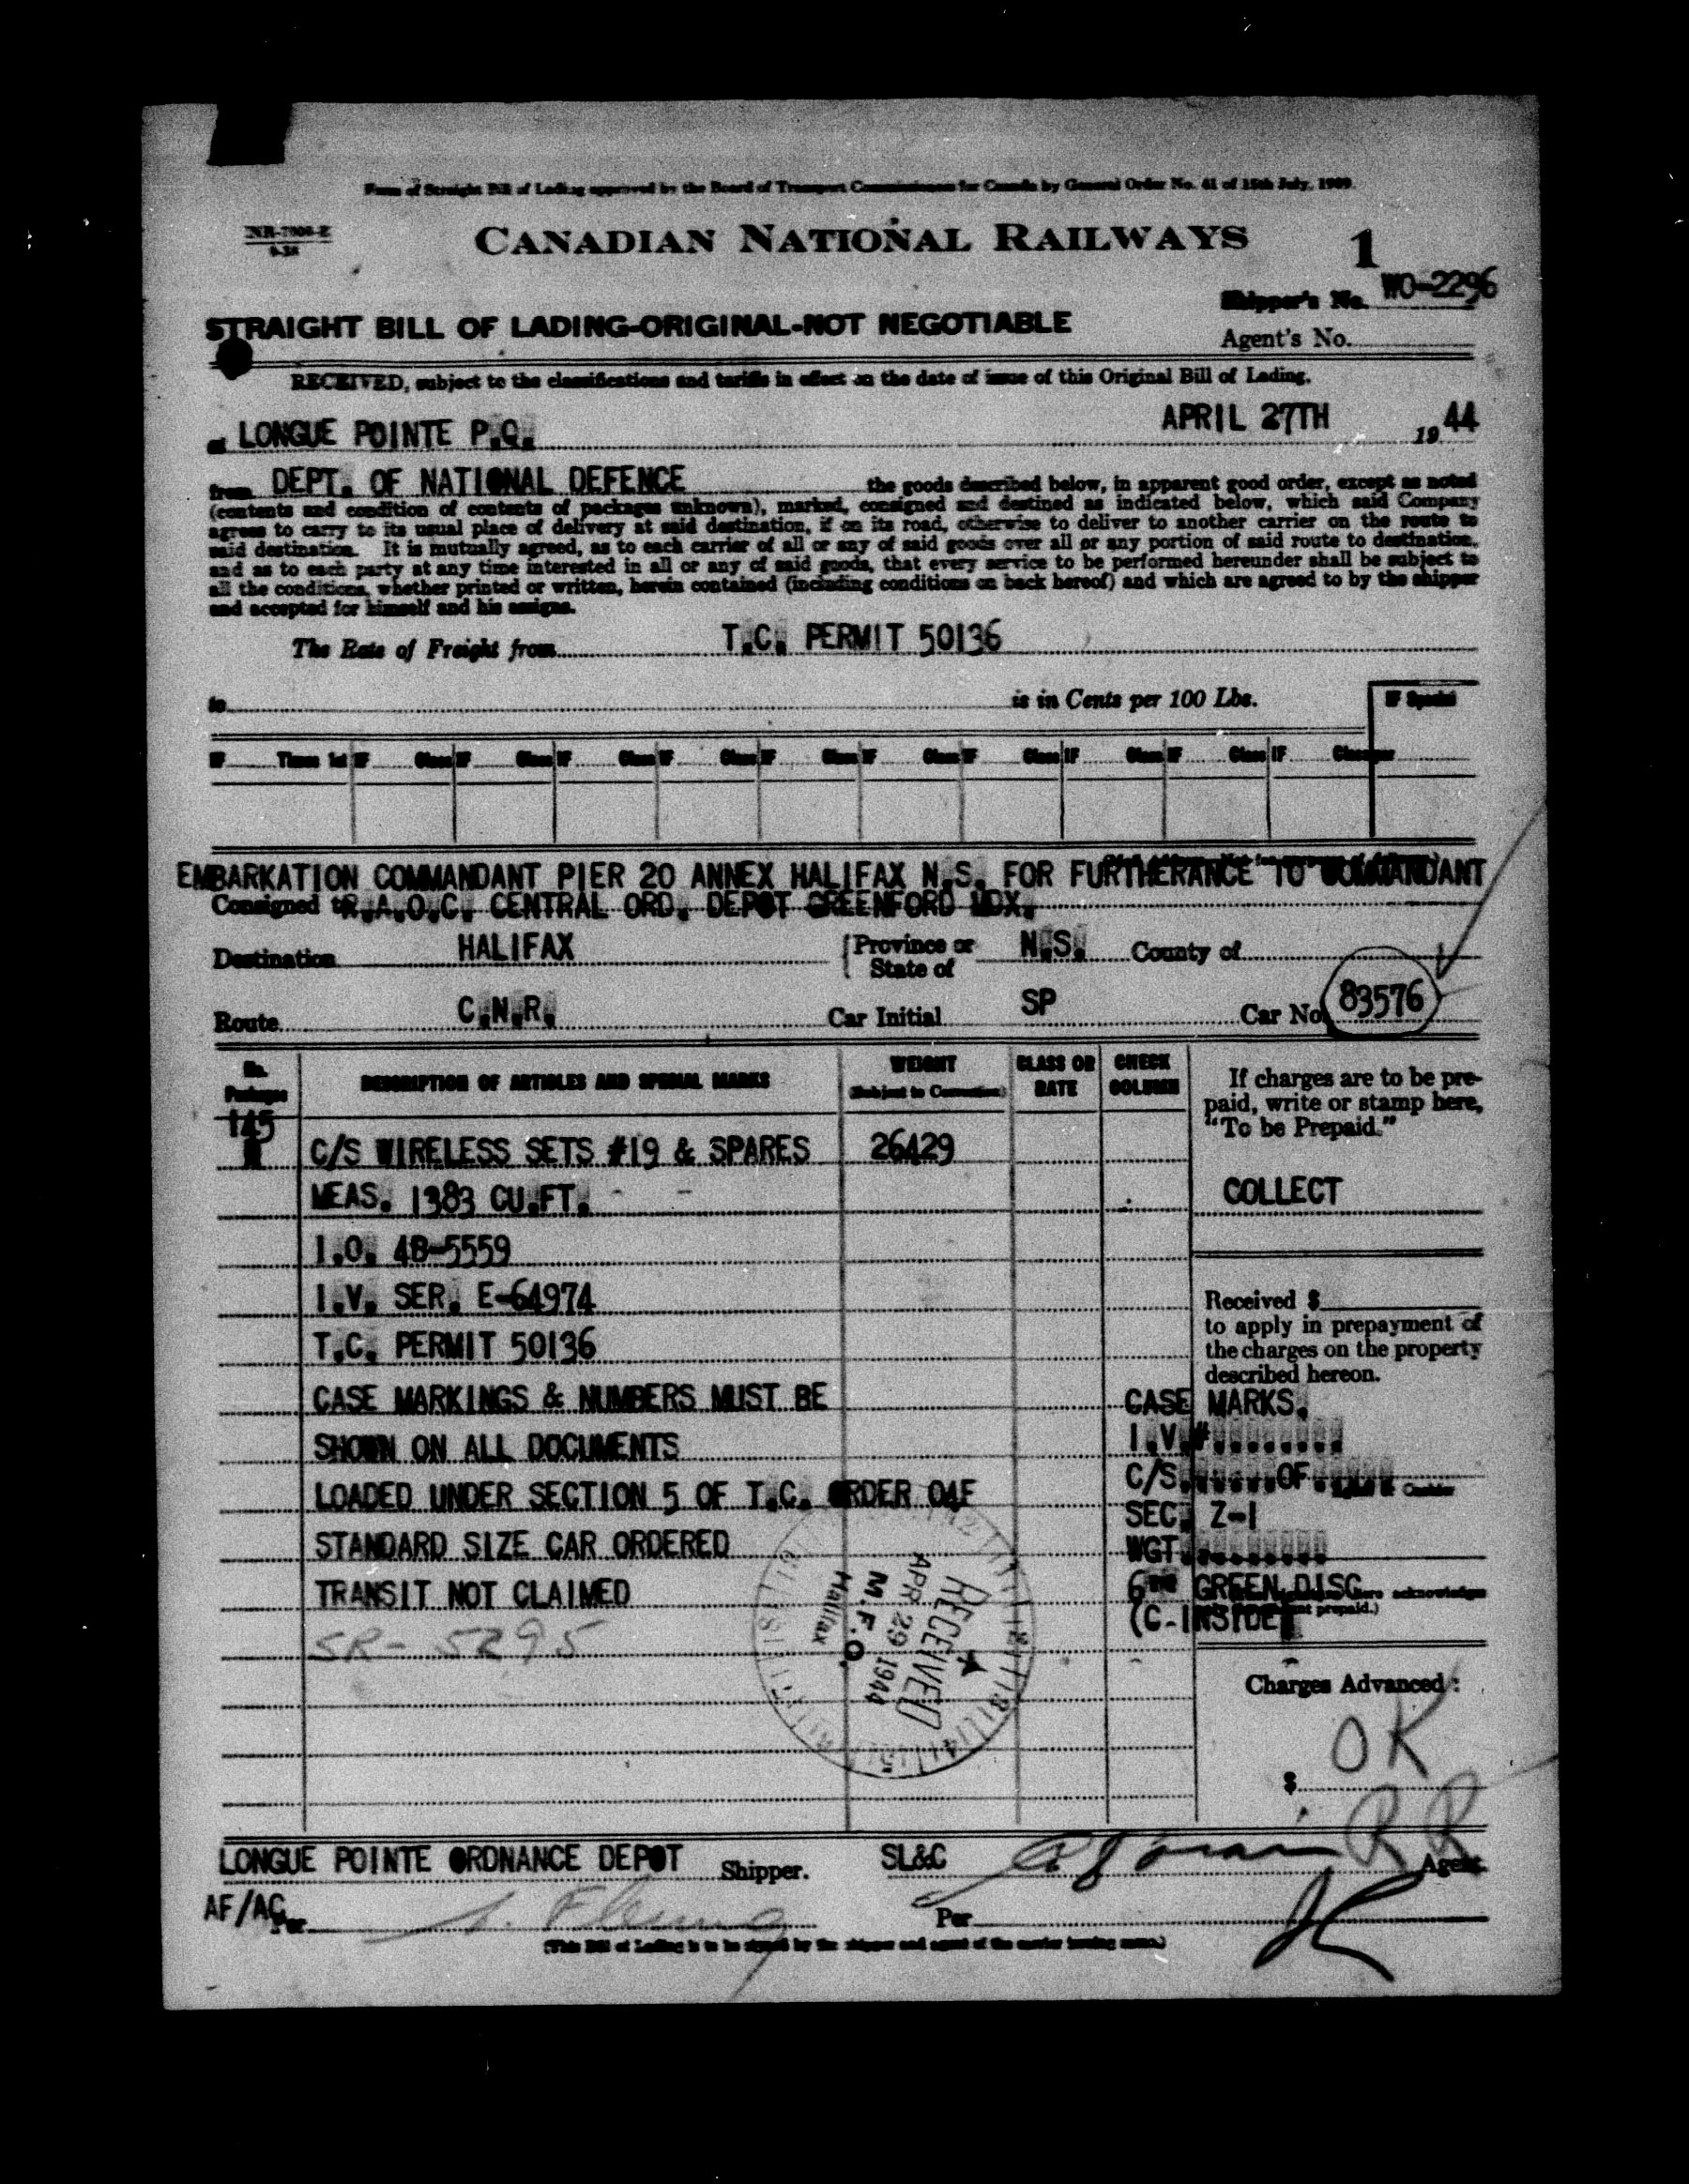 Form of Straight Bill of Lading approved by the Board of Transport Commissioners for Canada by General Order No. 41 of 15th July, 1909.
CANADIAN NATIONAL RAILWAYS
1
Shipper's No. WO-2296
STRAIGHT BILL OF LADING-ORIGINAL-NOT NEGOTIABLE
Agent's No.
RECEIVED, subject to the classifications and tariffs in effect on the date of issue of this Original Bill of Lading,
at LONGUE POINTE P.Q. APRIL 27TH 1944
from DEPT. OF NATIONAL DEFENCE the goods described below, in apparent good order, except as noted
(contents and condition of contents of packages unknown), marked, consigned and destined as indicated below, which said Company
agrees to carry to its usual place of delivery at said destination, if on its road, otherwise to deliver to another carrier on the route to
said destination. It is mutually agreed, as to each carrier of all or any of said goods over all or any portion of said route to destination,
and as to each party at any time interested in all or any of said goods, that every service to be performed hereunder shall be subject to
all the conditions, whether printed or written, herein contained (including conditions on back hereof) and which are agreed to by the shipper
and accepted for himself and his assigns.
The Rate of Freight from T.C. PERMIT 50136
to is in Cents per 100 Lbs.
IF Special
IF Times 1st IF Class IF Class IF Class IF Class IF Class IF Class IF Class IF Class IF Class IF Class per
EMBARKATION COMMANDANT PIER 20 ANNEX HALIFAX N.S. FOR FURTHERANCE TO COMMANDANT
Consigned to R.A.O.C. CENTRAL ORD. DEPOT GREENFORD MDX.
Destination HALIFAX Province or State of N.S. County of
Route C.N.R. Car Initial SP Car No. 83576
No. Packages
DESCRIPTION OF ARTICLES AND SPECIAL MARKS
WEIGHT (Subject to Correction)
CLASS OR RATE
CHECK COLUMN
If charges are to be pre-
paid, write or stamp here,
"To be Prepaid."
145
C/S WIRELESS SETS #19 & SPARES 26429
MEAS. 1383 CU.FT.
COLLECT
I.O. 4B-5559
I.V. SER. E-64974
Received $
to apply in prepayment of
the charges on the property
described hereon.
T.C. PERMIT 50136
CASE MARKINGS & NUMBERS MUST BE
CASE MARKS.
SHOWN ON ALL DOCUMENTS
I.V.#........
LOADED UNDER SECTION 5 OF T.C. ORDER 04F
C/S......OF......
SEC. Z-1
STANDARD SIZE CAR ORDERED
WGT.........
TRANSIT NOT CLAIMED
6" GREEN DISC
(C-INSIDE)
SR-5295
RECEIVED
APR 29 1944
M.F.O.
Halifax
Charges Advanced:
OK
$
RR
LONGUE POINTE ORDNANCE DEPOT Shipper. SL&C Agent.
AF/AC Per Per
(This Bill of Lading is to be signed by the shipper and agent of the carrier issuing same.)